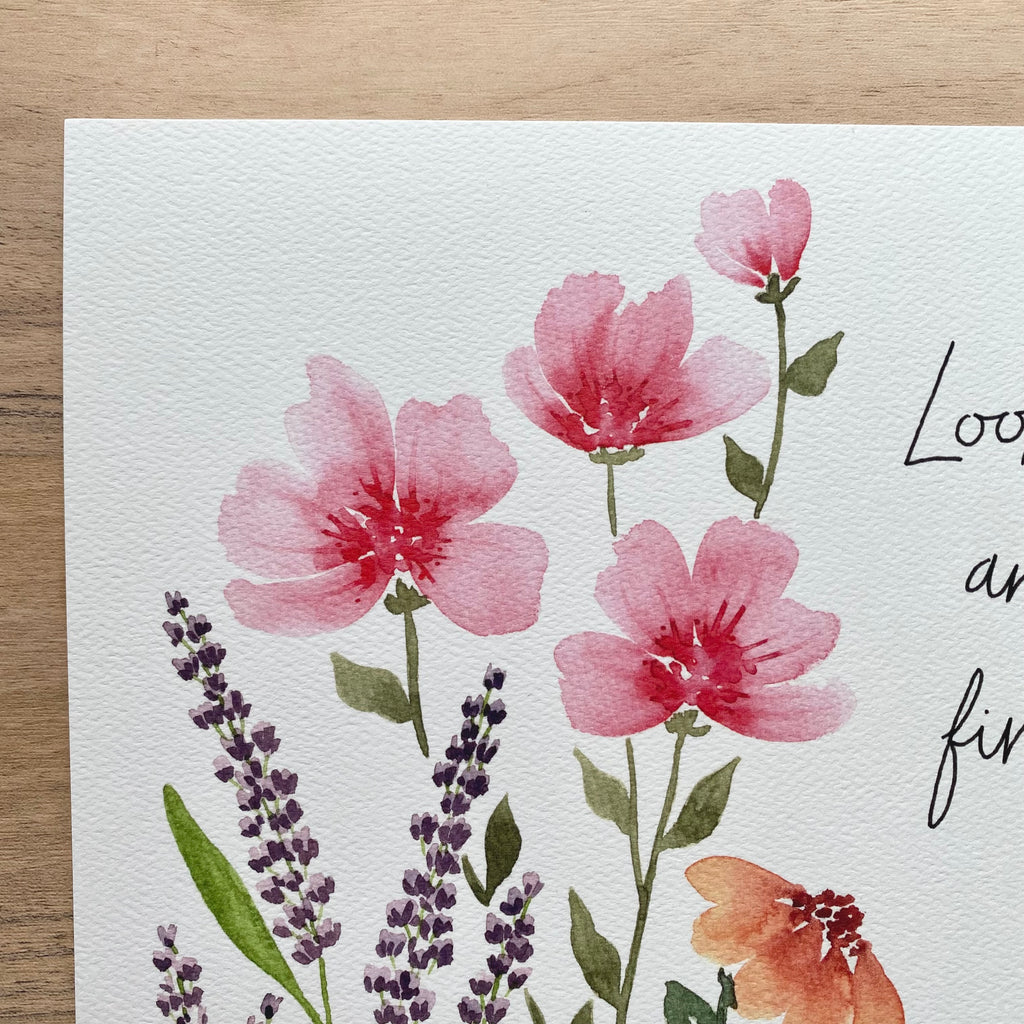 Loo
an
fin